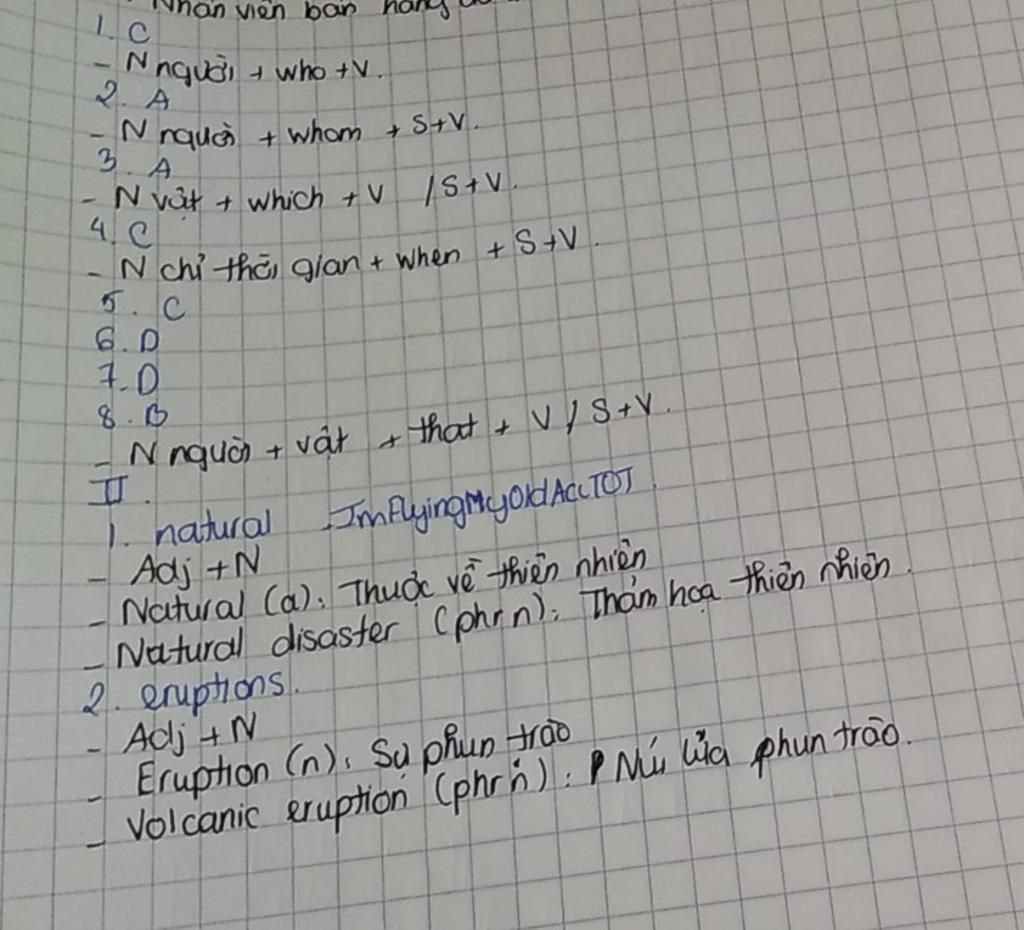 Nhân viên bán hàng
1. C
- N người + who + V.
2. A
- N người + whom + S+V.
3. A
- N vật + which + V / S+V.
4. C
- N chỉ thời gian + when + S+V.
5. C
6. D
7. D
8. B
- N người + vật + that + V / S+V.
II.
1. natural - ImFlyingMyOldAccTOT
- Adj + N
- Natural (a): Thuộc về thiên nhiên
- Natural disaster (phr n): Thảm hoạ thiên nhiên.
2. eruptions.
- Adj + N
- Eruption (n): Sự phun trào
- Volcanic eruption (phr n): Núi lửa phun trào.